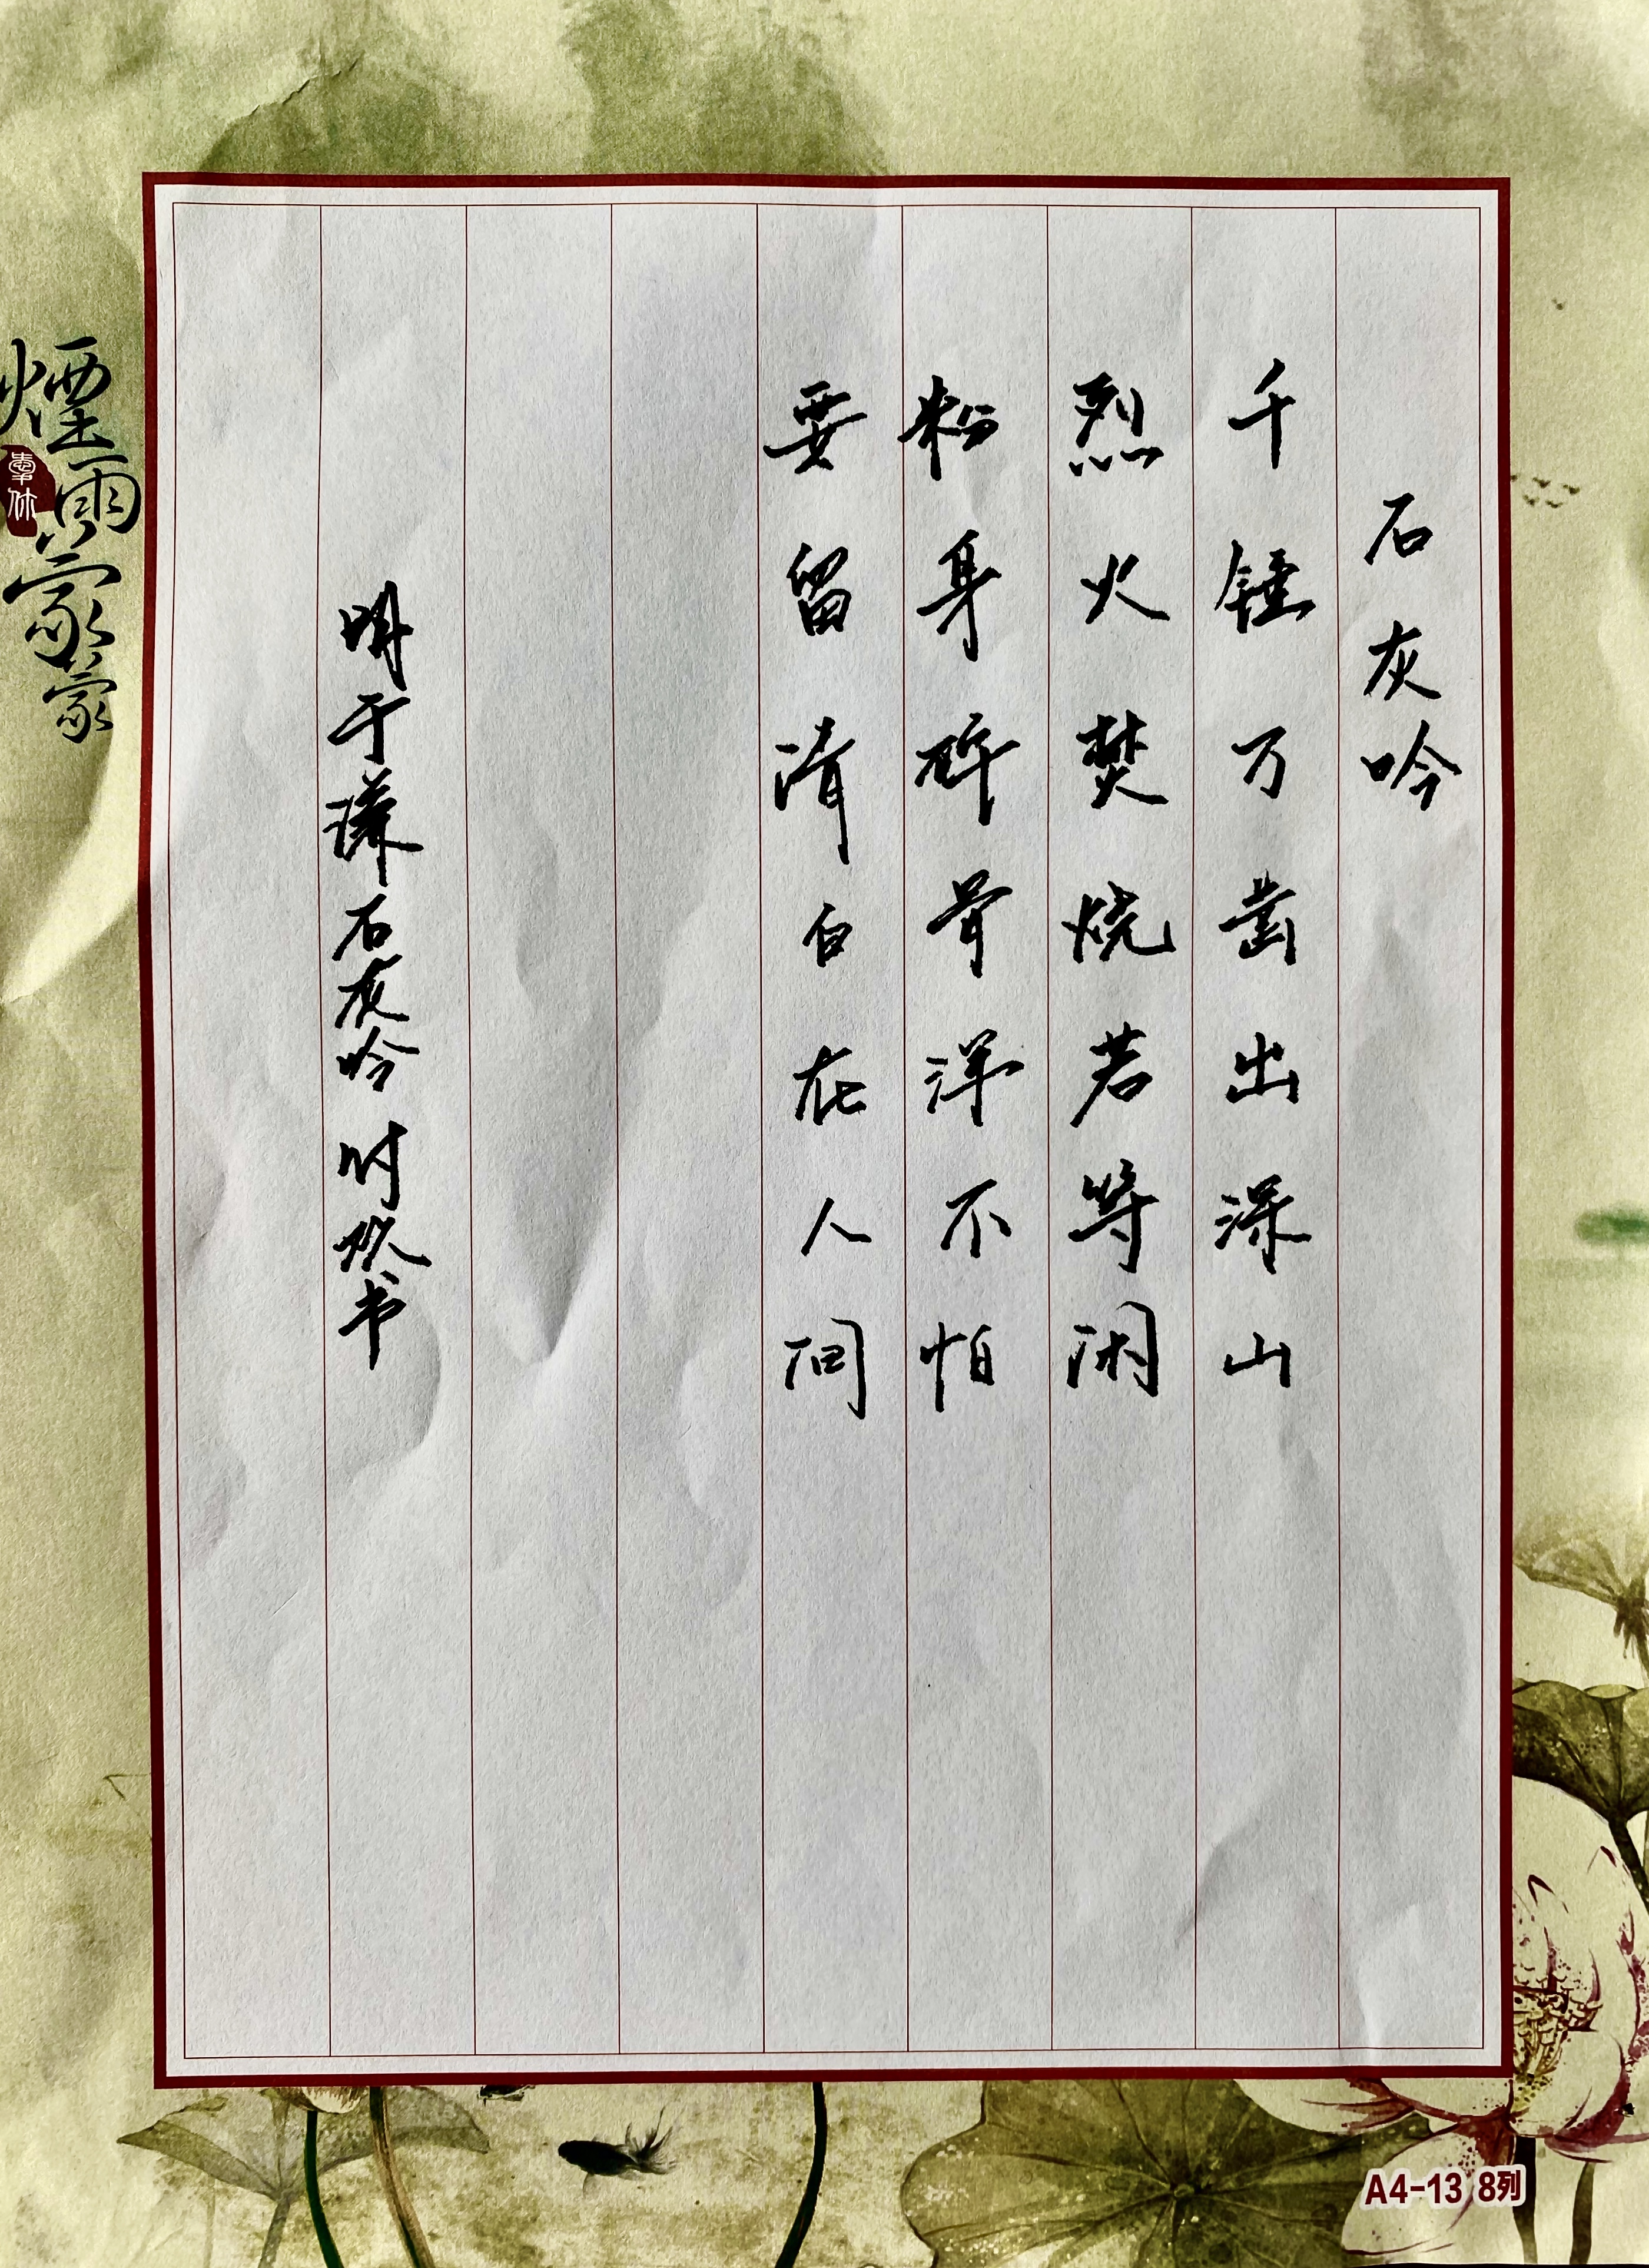 石灰吟
千锤万凿出深山
烈火焚烧若等闲
粉身碎骨浑不怕
要留清白在人间
明于谦石灰吟 时书
煙雨蒙蒙
A4-13 8列